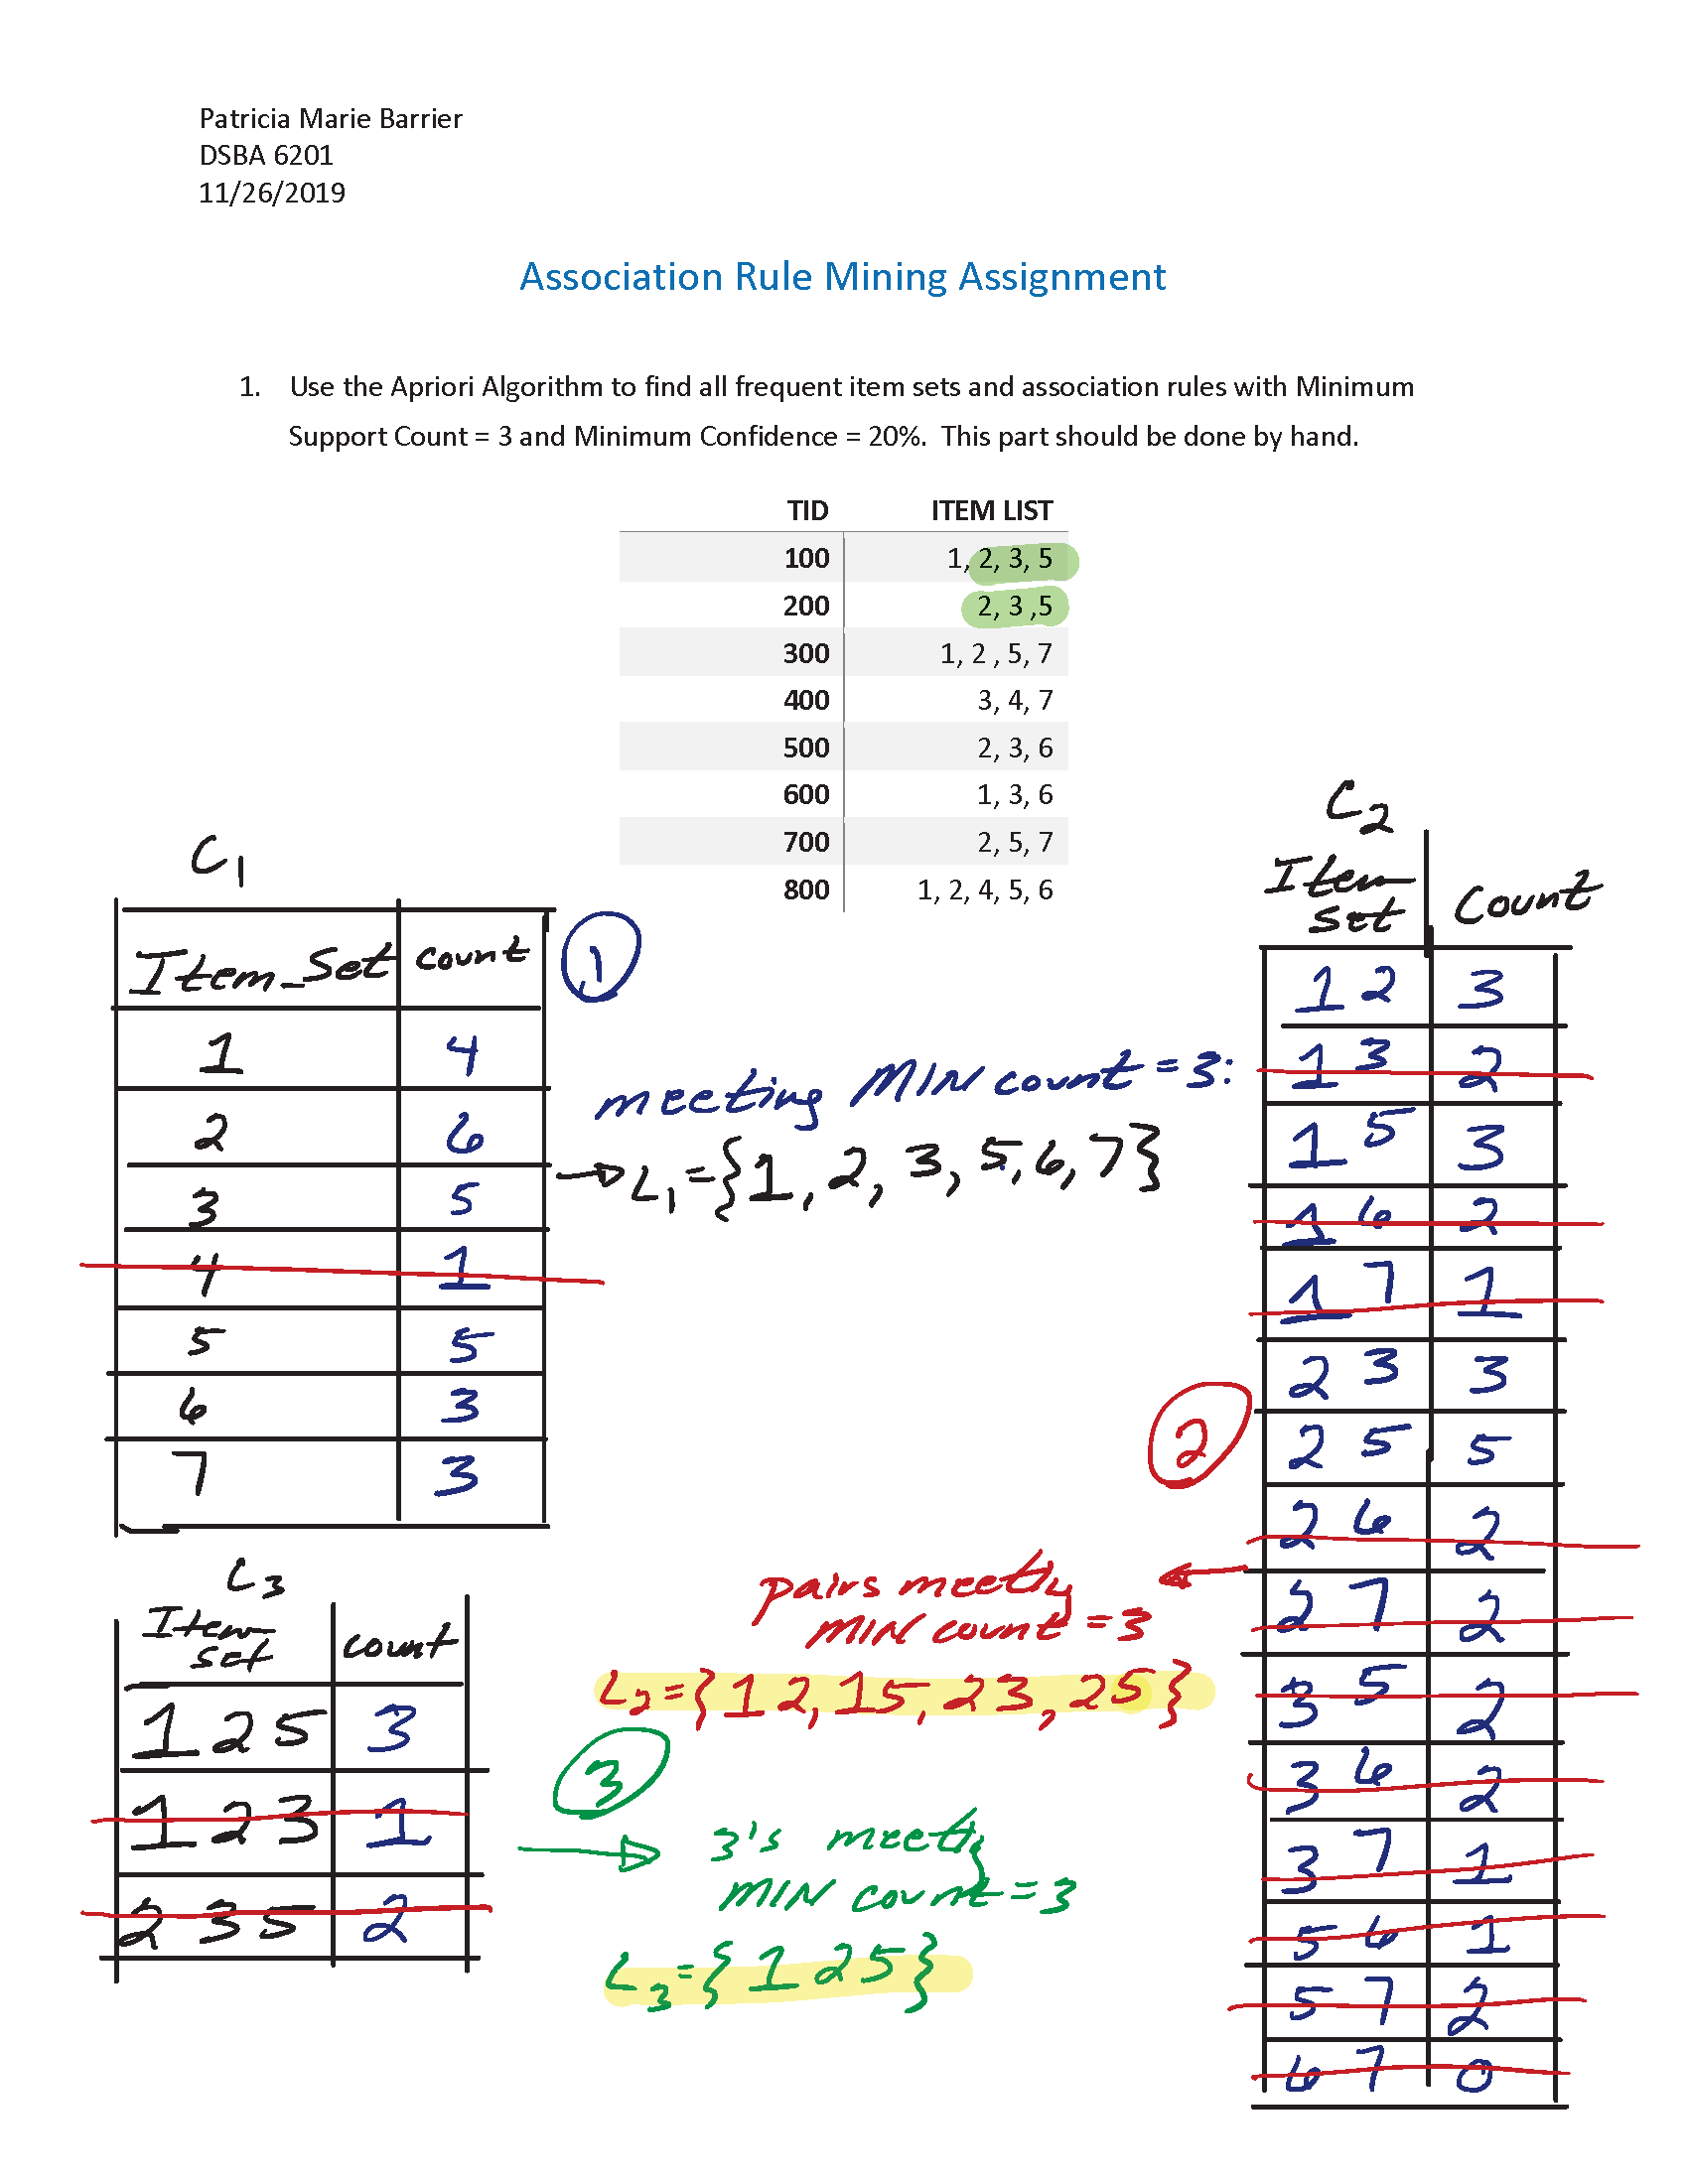 Patricia Marie Barrier
DSBA 6201
11/26/2019
Association Rule Mining Assignment
1. Use the Apriori Algorithm to find all frequent item sets and association rules with Minimum
Support Count = 3 and Minimum Confidence = 20%. This part should be done by hand.
TID ITEM LIST
100 1, 2, 3, 5
200 2, 3 ,5
300 1, 2 , 5, 7
400 3, 4, 7
500 2, 3, 6
600 1, 3, 6
700 2, 5, 7
800 1, 2, 4, 5, 6
C1
Item_Set count
1 4
2 6
3 5
4 1
5 5
6 3
7 3
1
meeting MIN count = 3:
→ L1 = {1, 2, 3, 5, 6, 7}
C2
Item
set Count
1 2 3
1 3 2
1 5 3
1 6 2
1 7 1
2 3 3
2 5 5
2 6 2
2 7 2
3 5 2
3 6 2
3 7 1
5 6 1
5 7 2
6 7 0
2
pairs meetly
MIN count = 3
L2 = {1 2, 15, 23, 25}
C3
Item
set count
1 2 5 3
1 2 3 1
2 3 5 2
3
3's meetly
MIN count = 3
L3 = {1 2 5}